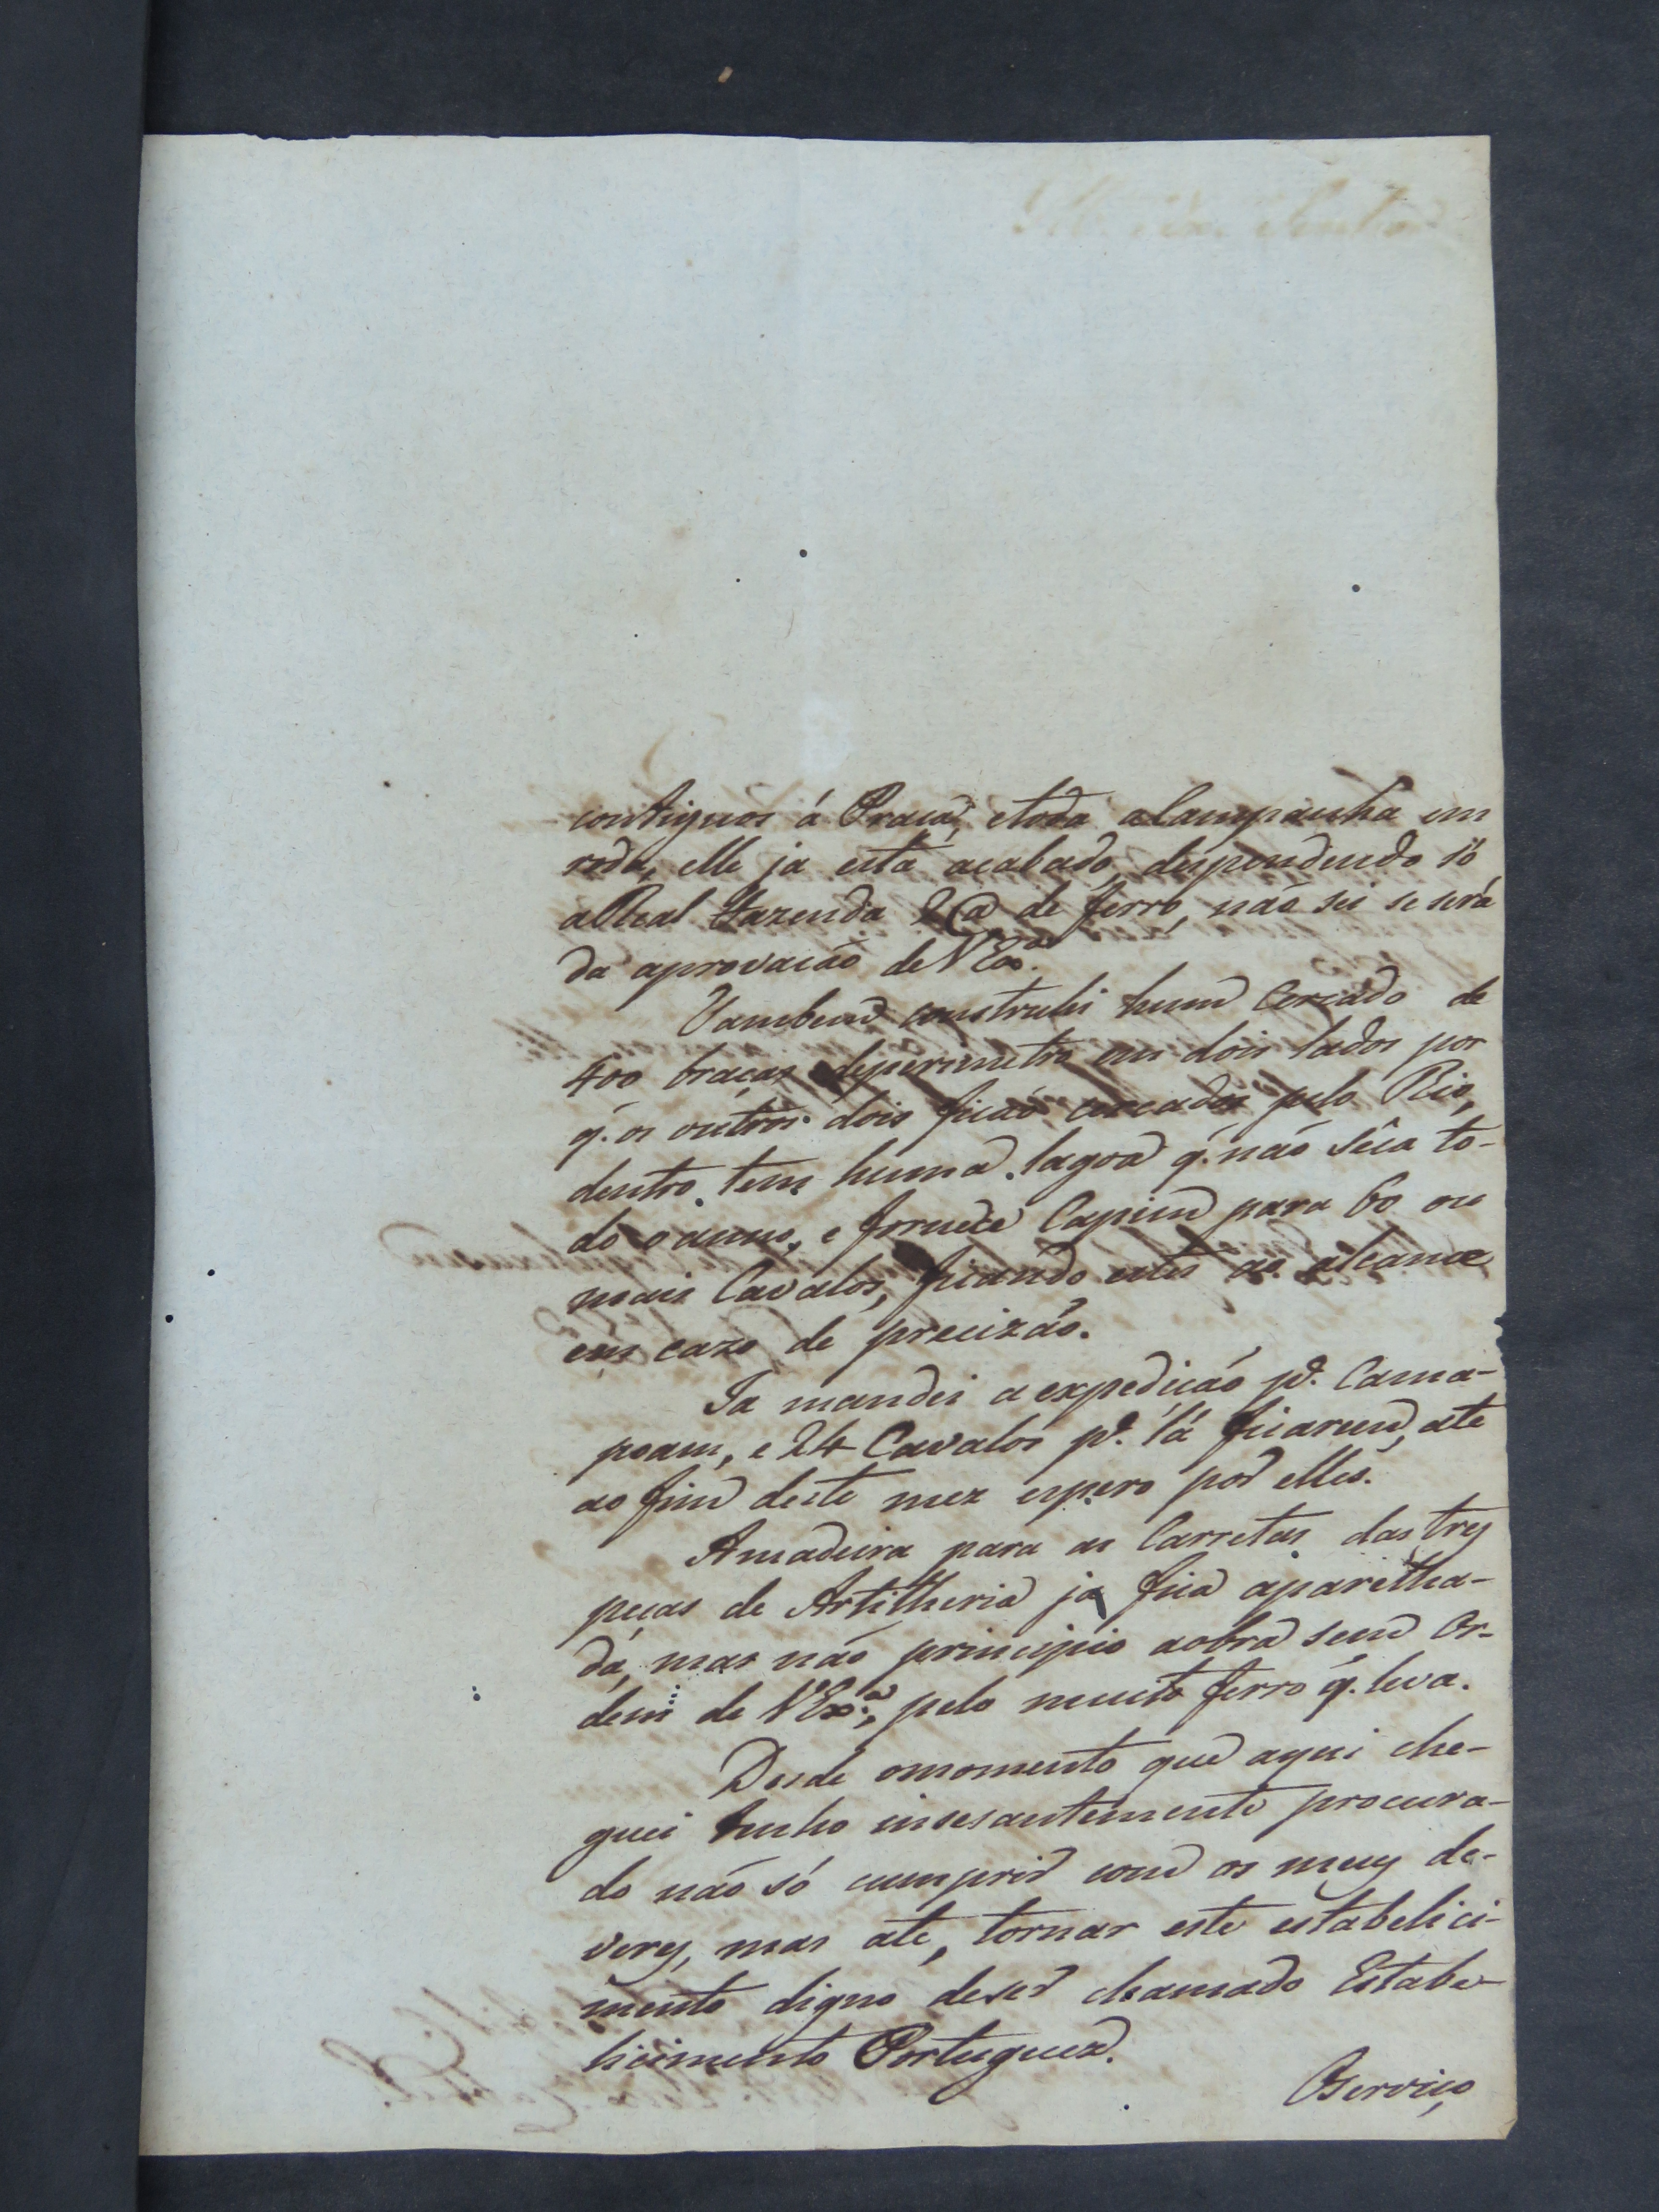 contiguos á Praça, etoda aCampanha em
roda, elle ja está acabado, despendendo só
aReal Fazenda 2@ de ferro, não sei se será
da aprovação de VExª.
Tambem construhi hum Cercado de
400 braças deperimetro em dois lados por
q. os outros dois ficão cercados pelo Rio,
dentro tem huma lagoa q. não sêca to-
do oanno, e fornece Capim para 60 ou
mais Cavalos, ficando estes ao alcance
em cazo de precizão.
Ja mandei a expedição pª. Cama-
poam, e 24 Cavalos pª. lá ficarem, ate
ao fim deste mez espero por elles.
Amadeira para as Carretas das trez
peças de Artilheria ja fica aparelha-
da, mas não principio aobra sem Or-
dem de VExª., pelo muito ferro q. leva.
Desde omomento que aqui che-
guei tenho insesantemente procura-
do não só cumprir com os meus de-
veres, mas ate, tornar este estabelici-
mento digno deser chamado Estabe-
licimento Portuguez.
Oserviço